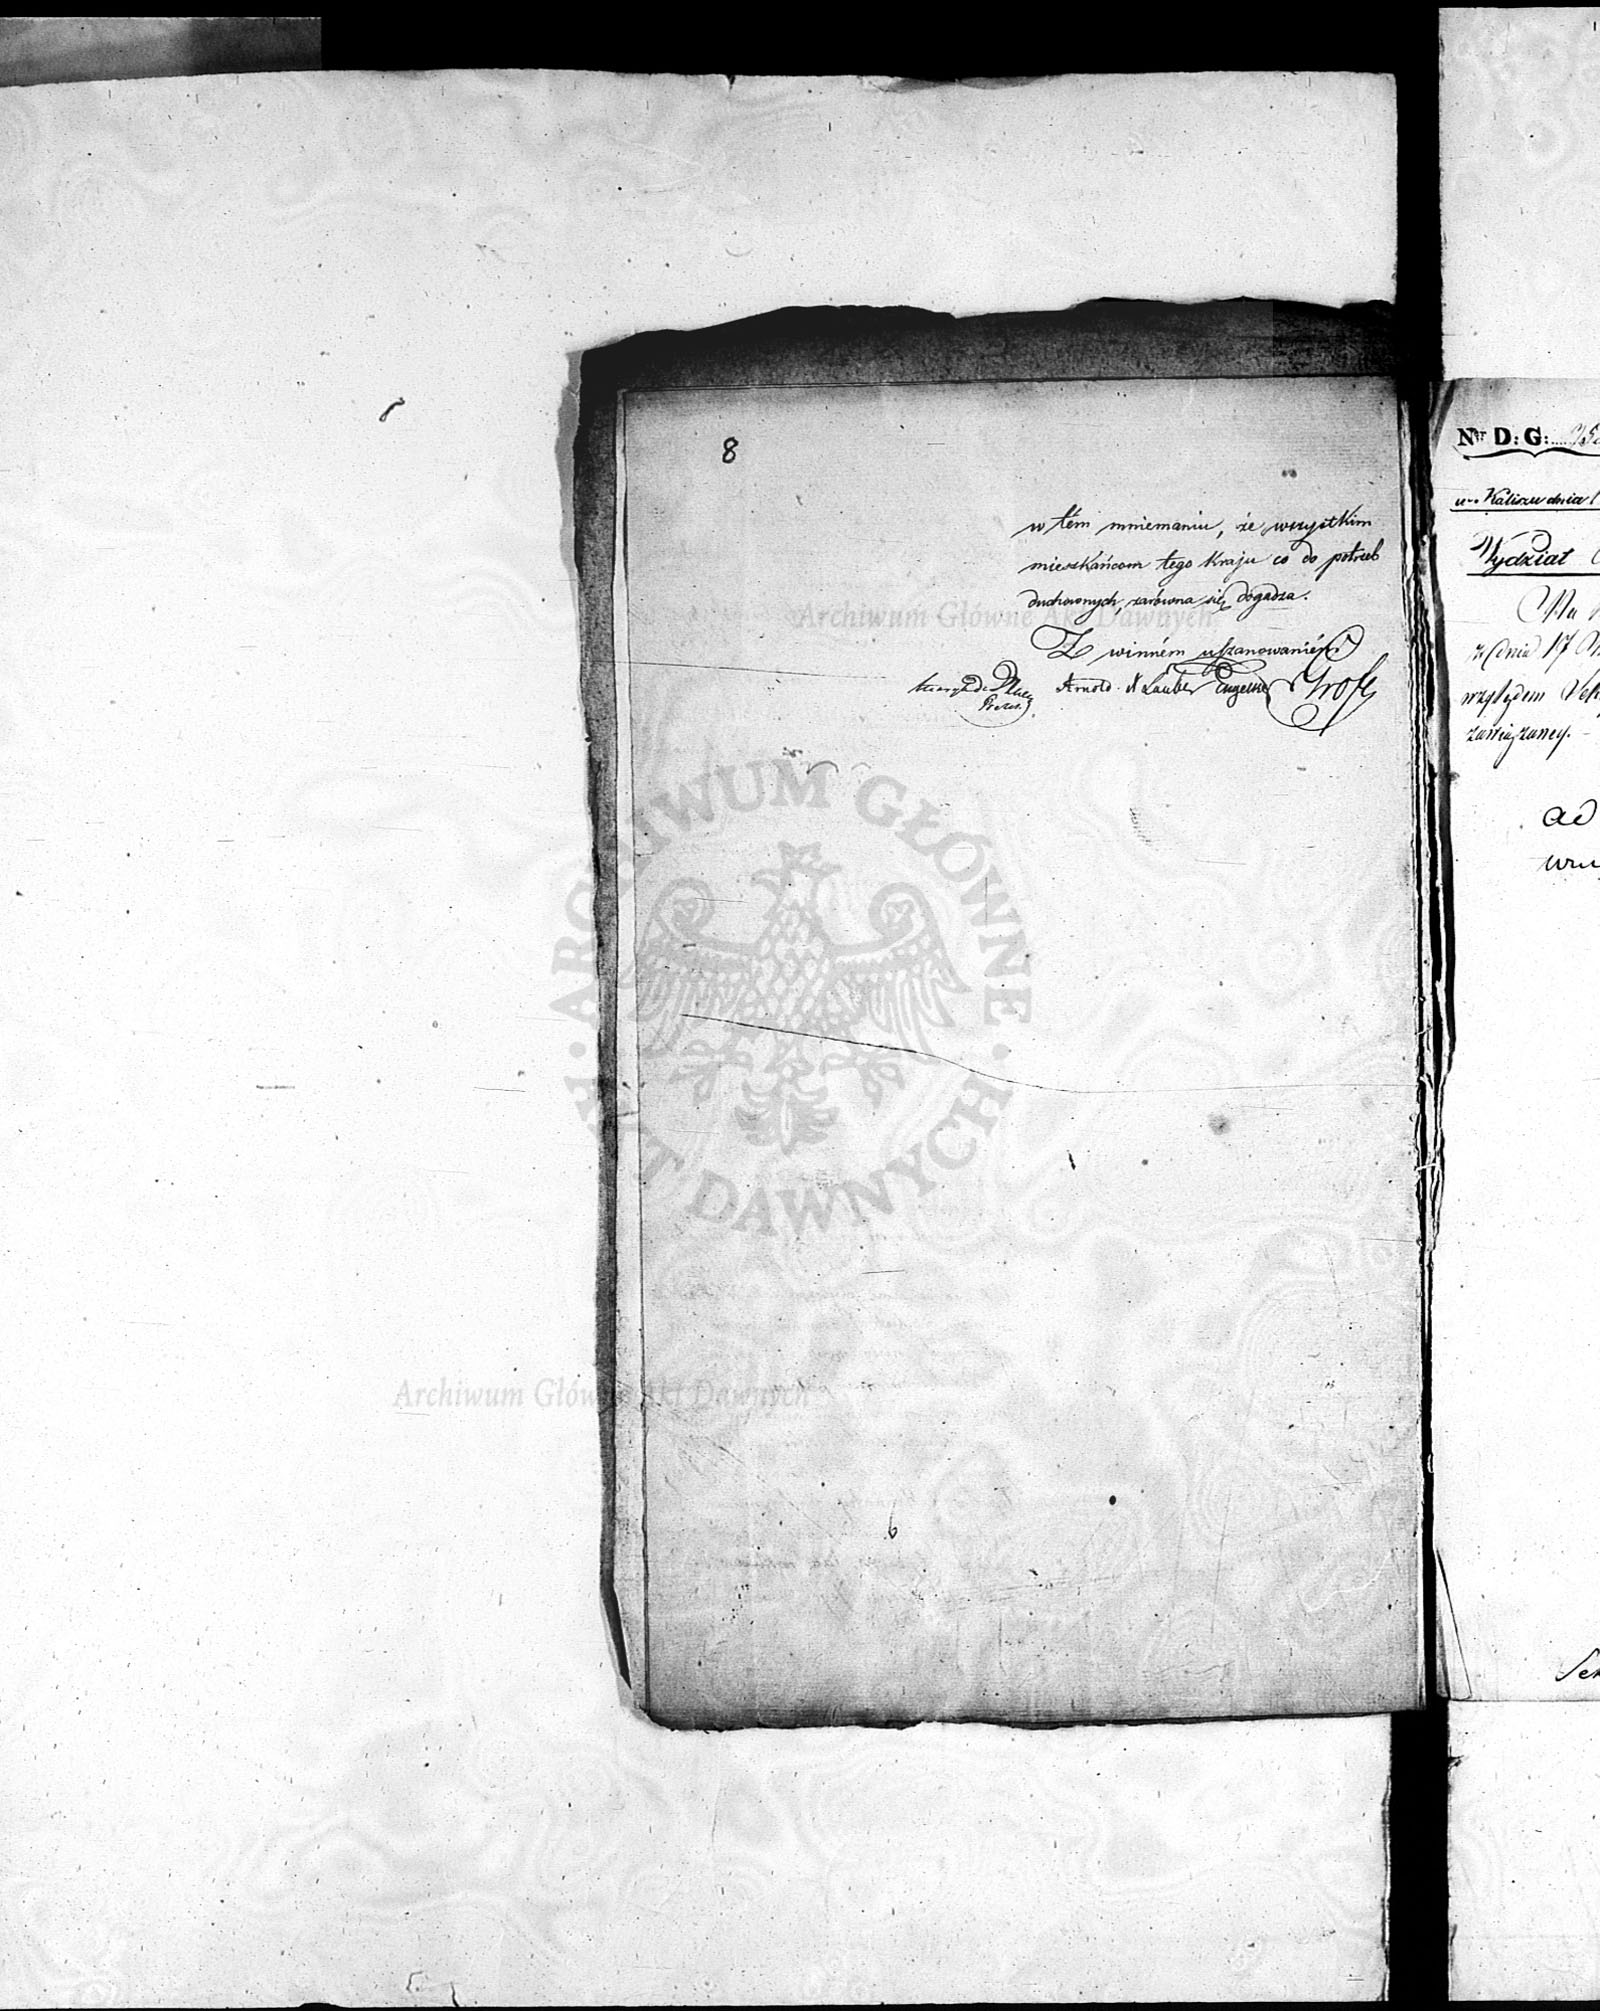 8
w tém mniemaniu, że wszystkim
mieszkańcom tego kraju co do potrzeb
duchownych, zarówna się dogadza.
Z winném uszanowaniém
Arnold. Lauber Engelke
Prezes.
Archiwum Główne Akt Dawnych
ARCHIWUM GŁÓWNE · AKT DAWNYCH ·
Archiwum Główne Akt Dawnych
Ner D: G:
w Kaliszu dnia
Wydział
z dnia 17
względem
zawiązaney. -
ad